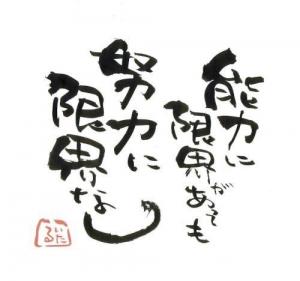 能力に
限界があっても
努力に
限界なし